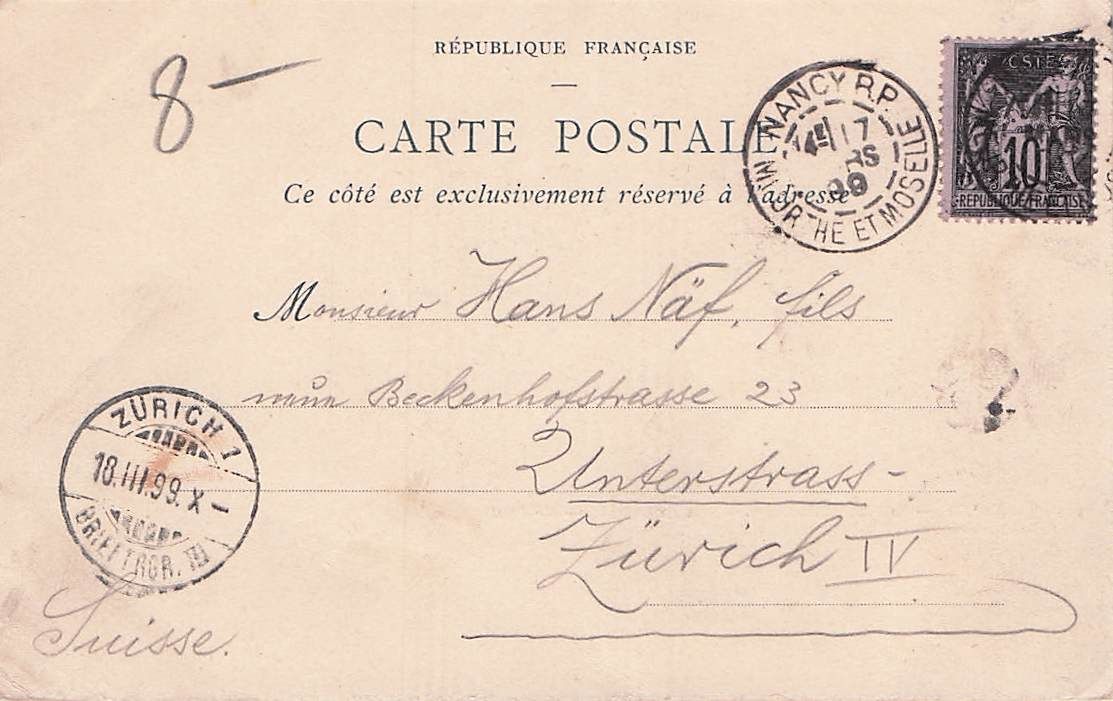 RÉPUBLIQUE FRANÇAISE
8 —
CARTE POSTALE
Ce côté est exclusivement réservé à l'adresse
NANCY R.P.
17
99
MEURTHE ET MOSELLE
POSTES
10
RÉPUBLIQUE FRANÇAISE
Monsieur Hans Näf, fils
Beckenhofstrasse 23
Unterstrass-
Zürich IV
Suisse.
ZÜRICH 1
18.III.99.X-
BRIEFTRGR. III